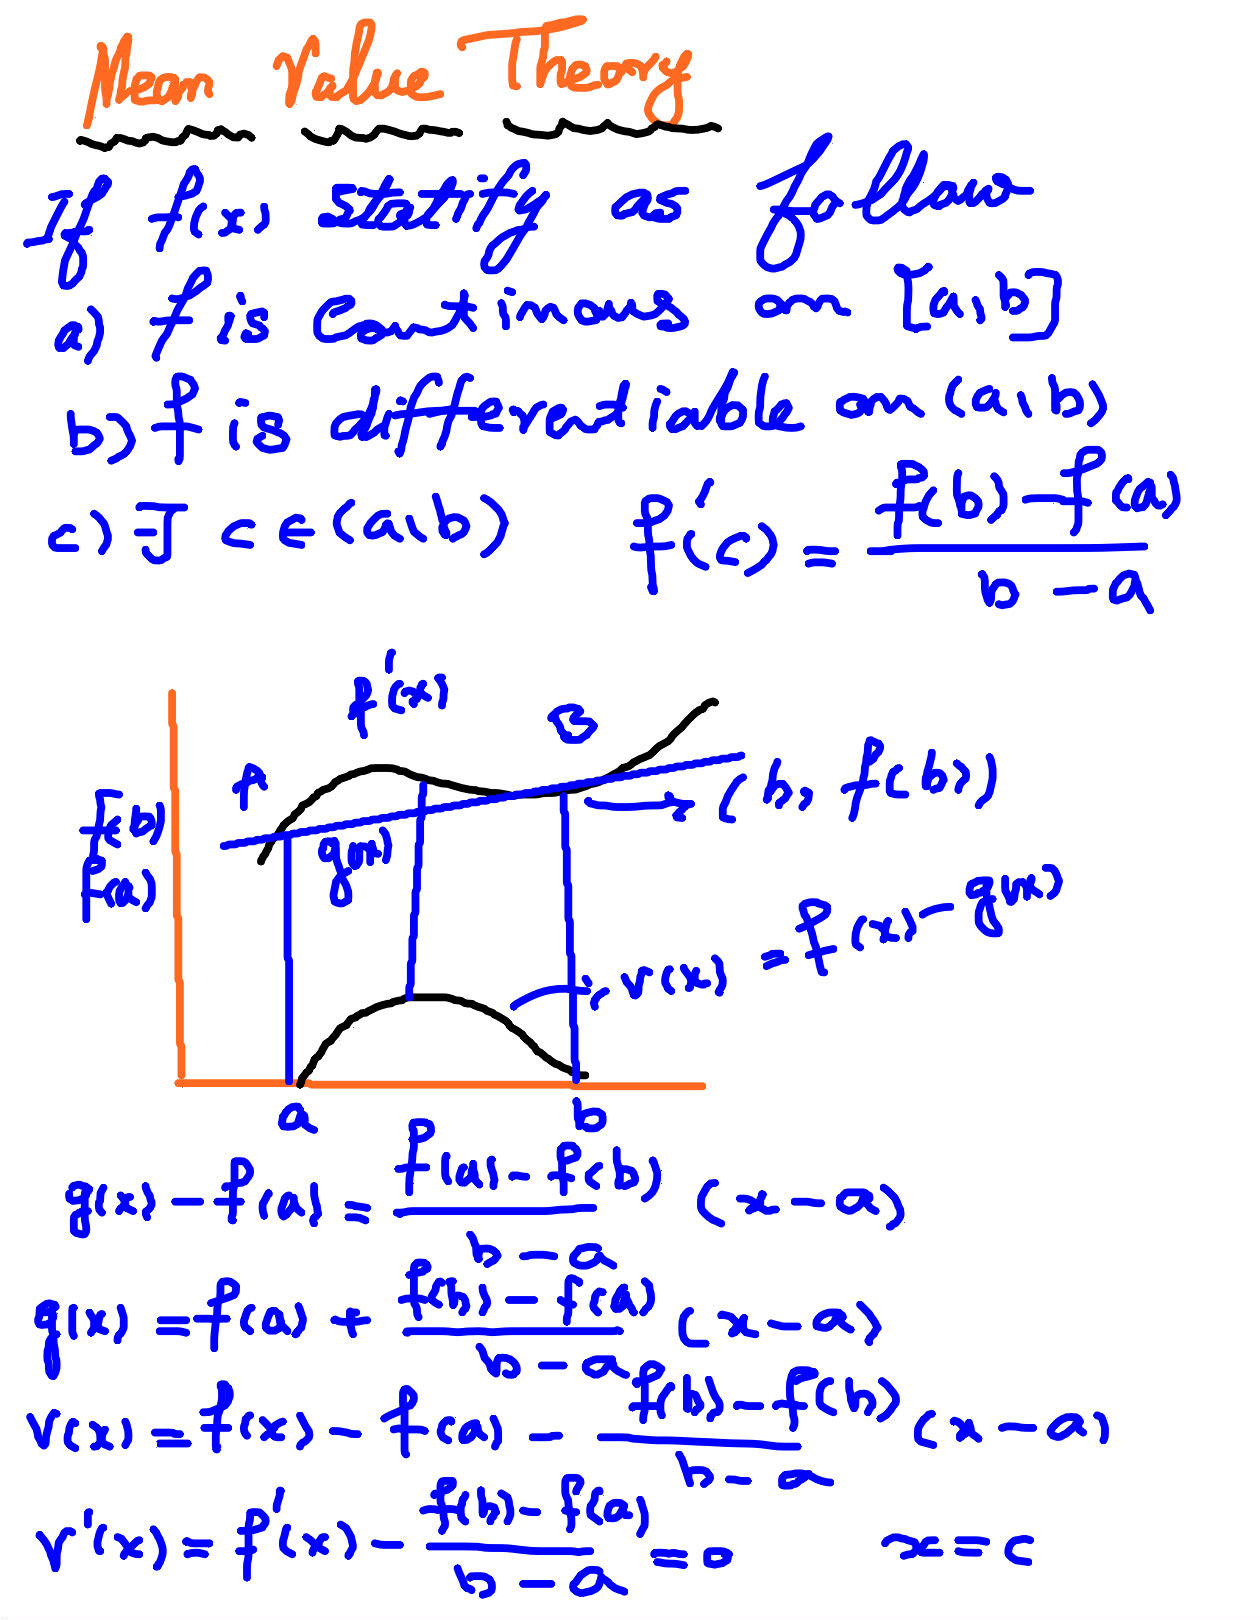 Mean Value Theory
If f(x) statify as follow
a) f is continous on [a,b]
b) f is differentiable on (a,b)
c) ∃ c ∈ (a,b) f'(c) = f(b) - f(a) / b - a
f'(x)
A
B
(b, f(b))
f(b)
g(x)
f(a)
v(x) = f(x) - g(x)
a
b
g(x) - f(a) = f(a) - f(b) / b - a (x - a)
g(x) = f(a) + f(b) - f(a) / b - a (x - a)
v(x) = f(x) - f(a) - f(b) - f(b) / b - a (x - a)
v'(x) = f'(x) - f(b) - f(a) / b - a = 0 x = c